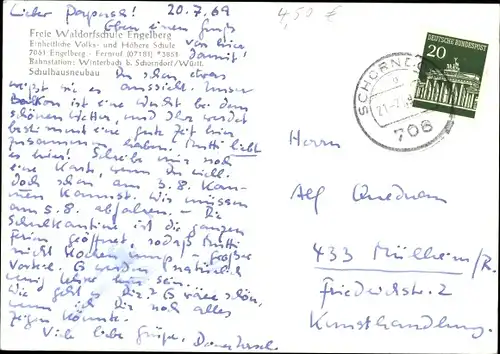 Lieber Papusch! 20.7.69
4,50 €
Eben einen Gruß
von hier
Freie Waldorfschule Engelberg
Einheitliche Volks- und Höhere Schule
7061 Engelberg · Fernruf (07181) *3851
Bahnstation: Winterbach b. Schorndorf/Württ.
Schulhausneubau
damit
Du schon etwas
weißt wie es aussieht. Unser
Balkon ist eine Wucht bei dem
schönen Wetter, und Ihr werdet
bestimmt eine gute Zeit hier
zusammen haben. Mutti liebt
es hier! Schreib mir noch
eine Karte, wenn Du willst.
doch schon am 3.8. kom-
men kannst. Wir müssen
am 5.8. abfahren. – Die
Schulkantine ist die ganzen
Ferien geöffnet, sodaß Mutti
nicht kochen muß – großer
Vorteil. Es werden natürlich
wenig Lehrer hier sein.
Wie geht es Dir? Es wäre schön,
wenn ich Dir noch alles
zeigen könnte.
Viele liebe Grüße,
DEUTSCHE BUNDESPOST
20
SCHORNDORF
21.-7.69
706
Herrn
Alf
433 Mülheim/R.
Friedrichstr. 2
Kunsthandlung